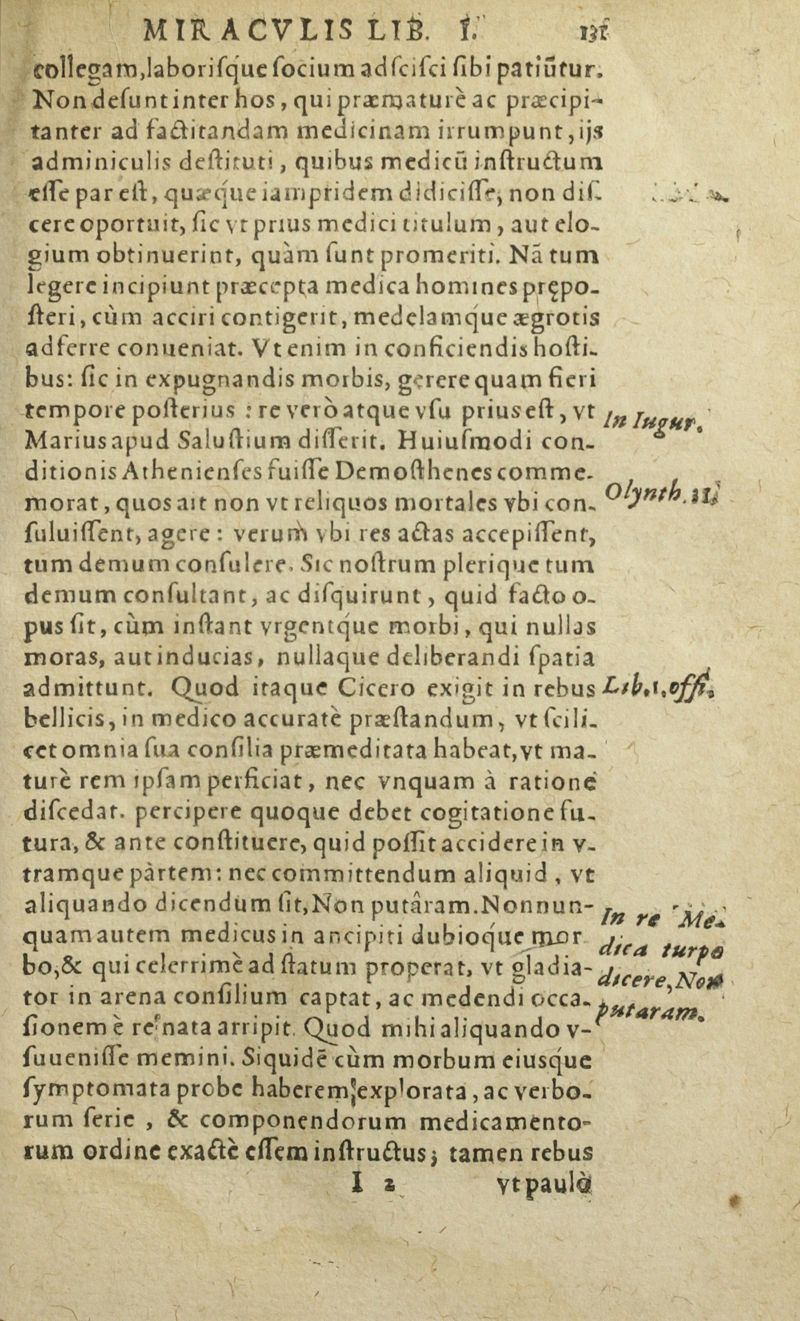 MIRACVLIS LIB. I. 131
collegam,laboriſque ſocium adſciſci ſibi patiūtur.
Non deſunt inter hos, qui præmaturè ac præcipi-
tanter ad factitandam medicinam irrumpunt,ijs
adminiculis deſtituti, quibus medicū inſtructum
eſſe par eſt, quæque iampridem didiciſſe, non diſ-
cere oportuit, ſic vt prius medici titulum, aut elo-
gium obtinuerint, quàm ſunt promeriti. Nā tum
legere incipiunt præcepta medica homines prępo-
ſteri, cùm acciri contigerit, medelamque ægrotis
adferre conueniat. Vt enim in conficiendis hoſti-
bus: ſic in expugnandis morbis, gerere quam fieri
tempore poſterius : re verò atque vſu prius eſt, vt
In Iugur.
Marius apud Saluſtium diſſerit. Huiuſmodi con-
ditionis Athenienſes fuiſſe Demoſthenes comme-
morat, quos ait non vt reliquos mortales vbi con-
Olynth. iii
ſuluiſſent, agere : verum vbi res actas accepiſſent,
tum demum conſulere. Sic noſtrum plerique tum
demum conſultant, ac diſquirunt, quid facto o-
pus ſit, cùm inſtant vrgentque morbi, qui nullas
moras, aut inducias, nullaque deliberandi ſpatia
admittunt. Quod itaque Cicero exigit in rebus
Lib.1.offi.
bellicis, in medico accuratè præſtandum, vt ſcili-
cet omnia ſua conſilia præmeditata habeat,vt ma-
turè rem ipſam perficiat, nec vnquam à ratione
diſcedat. percipere quoque debet cogitatione fu-
tura, & ante conſtituere, quid poſſit accidere in v-
tramque pàrtem: nec committendum aliquid , vt
aliquando dicendum ſit,Non putâram.Nonnun-
In re Me-
quam autem medicus in ancipiti dubioque mor
dica turpe
bo,& qui celerrimè ad ſtatum properat, vt gladia-
dicere,Non
tor in arena conſilium captat, ac medendi occa-
putaram.
ſionem è re nata arripit. Quod mihi aliquando v-
ſuueniſſe memini. Siquidē cùm morbum eiusque
ſymptomata probe haberem explorata, ac verbo-
rum ſerie , & componendorum medicamento-
rum ordine exactè eſſem inſtructus; tamen rebus
I 2 vt paulò